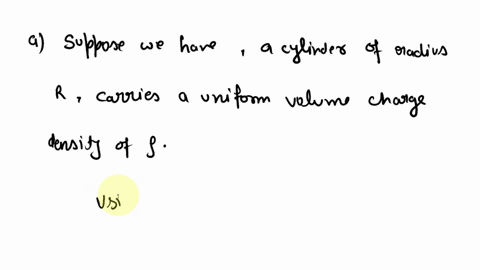 a) Suppose we have, a cylinder of radius
R, carries a uniform volume charge
density of ρ.
Usi